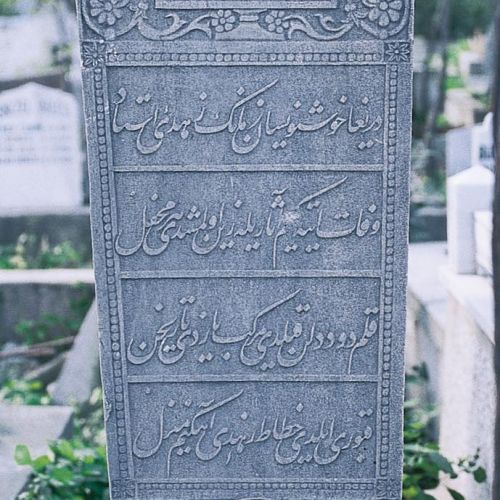 دریغا خوشنویسان زمانك زهدی استاد
وفات ایتدی كیم آثاریله زین اولمشدی هر محفل
قلم دود دلن قیلدی مركب یازدی تاریخن
قبوری ایلدی خطاط زهدی آه كیم منزل